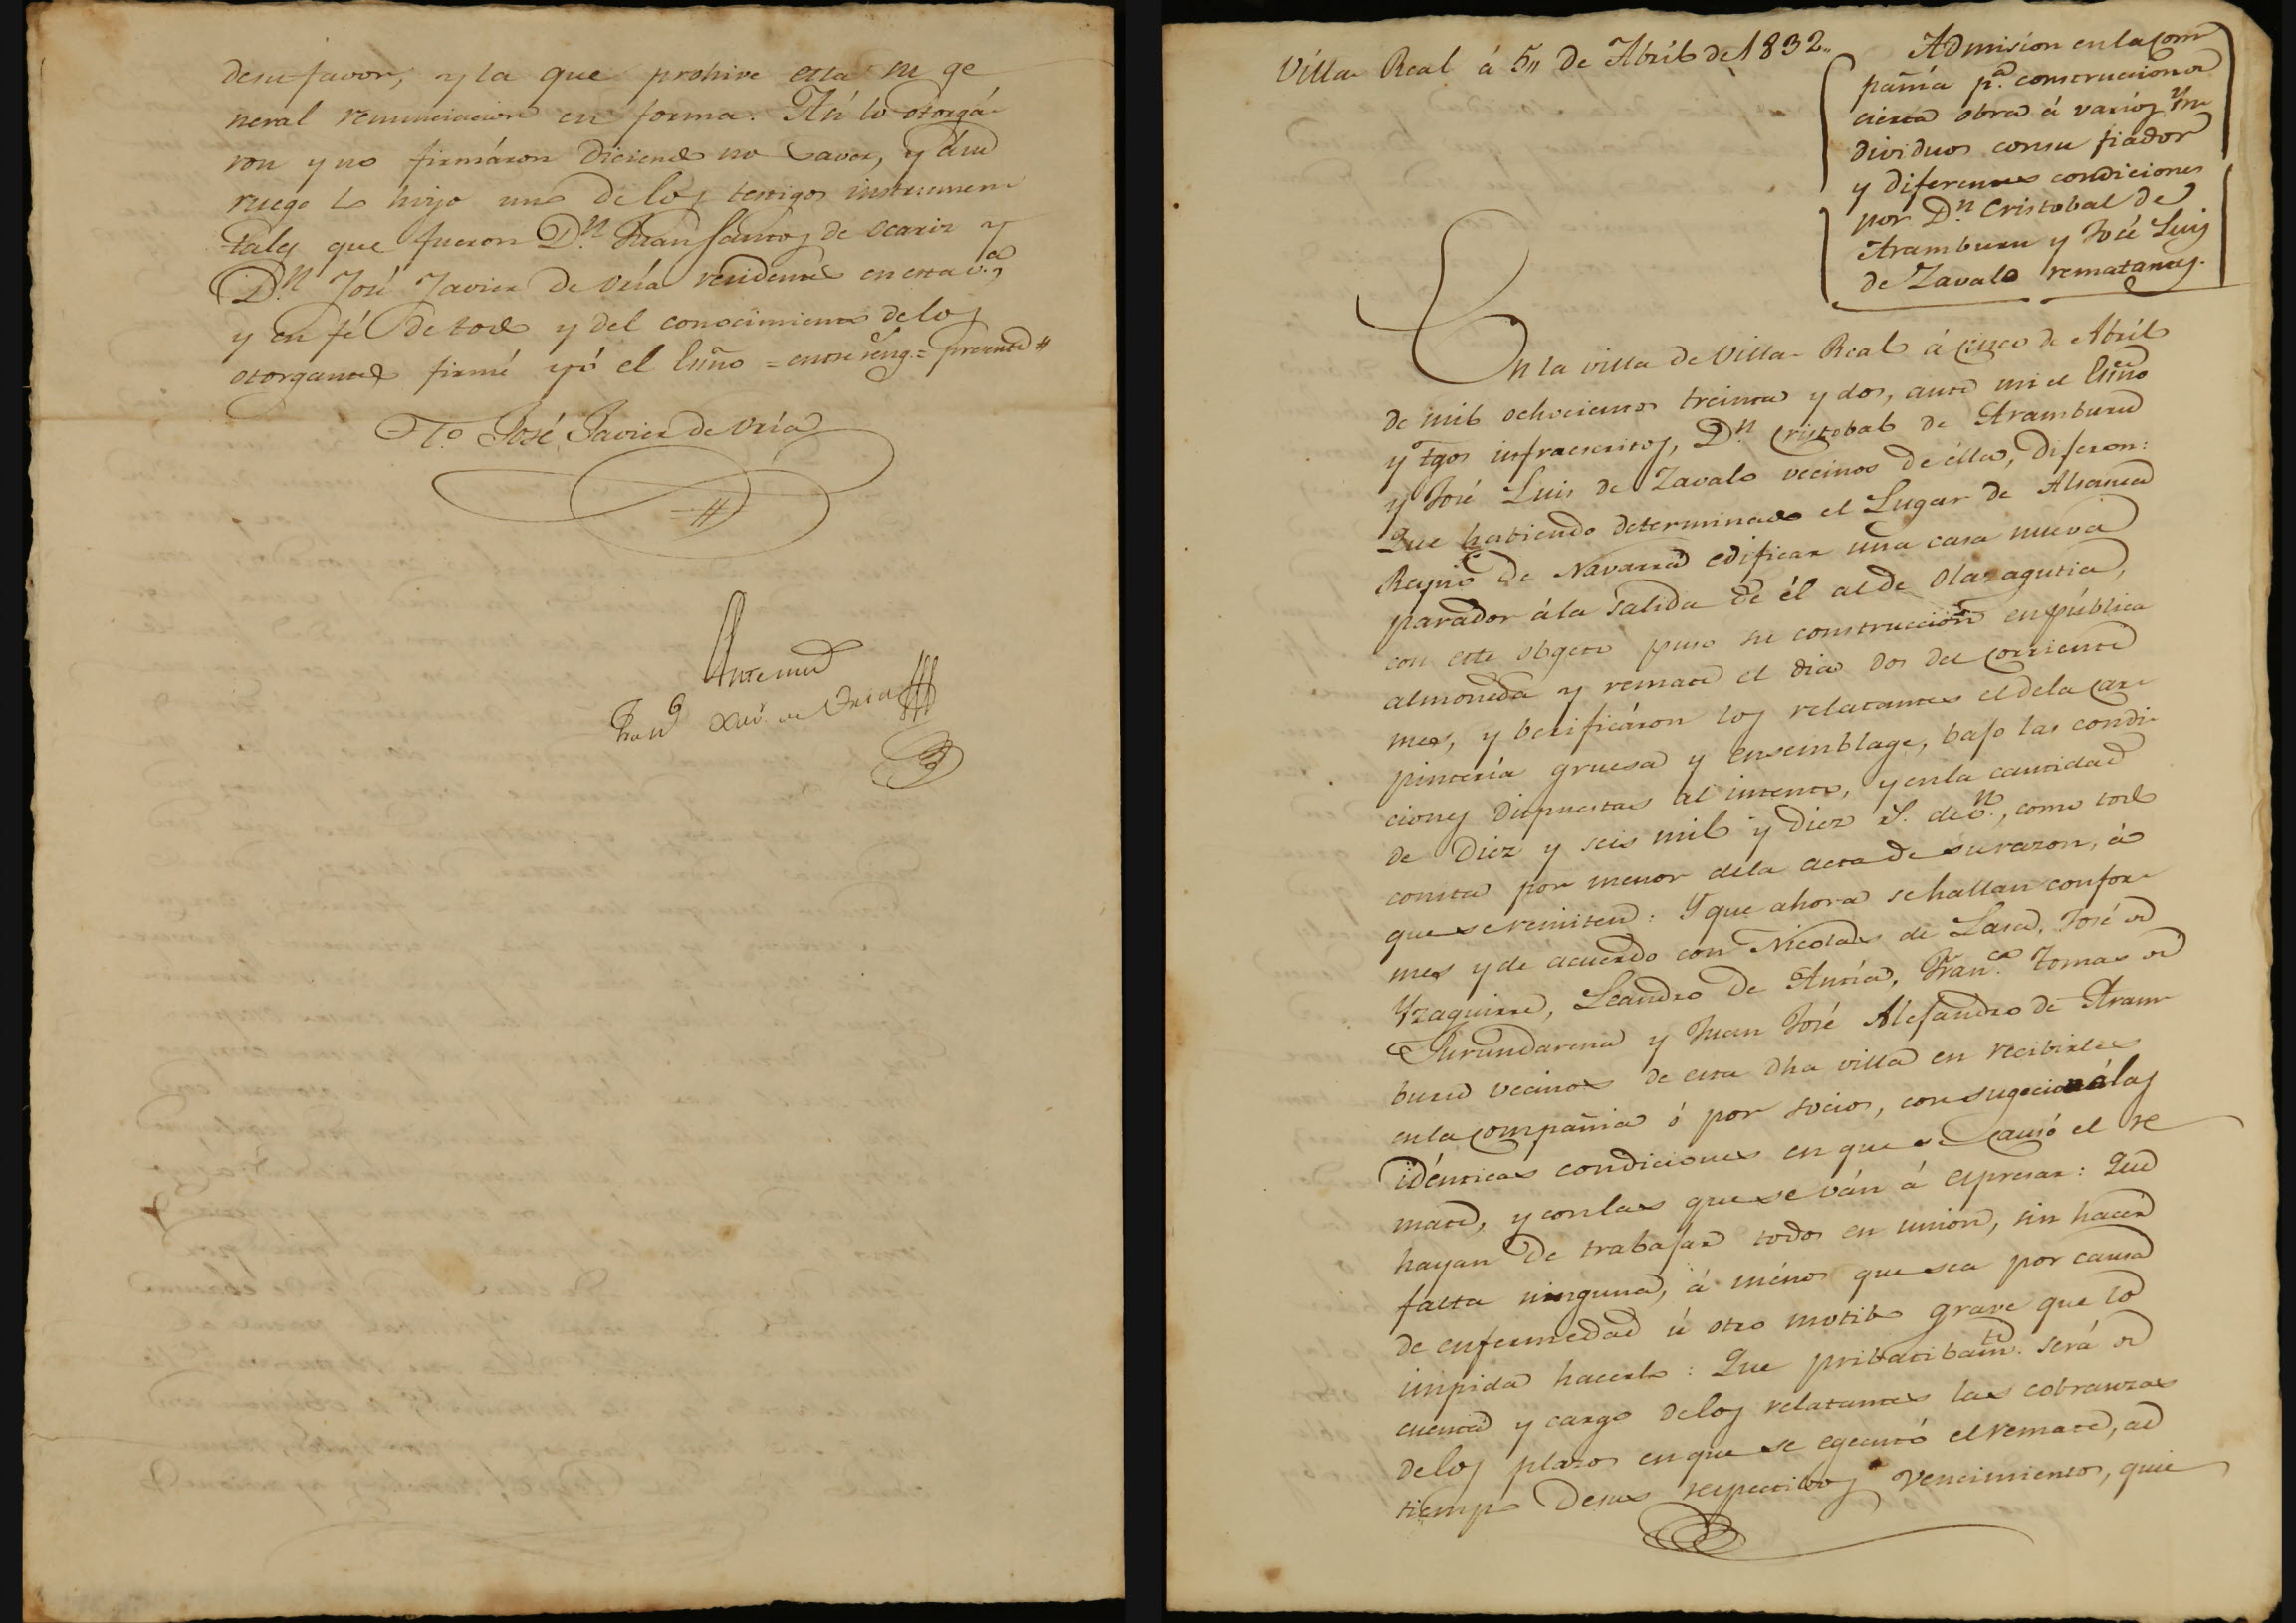 desu favor, y la que prohive esta su ge
neral renunciacion en forma. Asi lo otorgá-
ron y no firmáron diciendo no saver, y á su
ruego lo hizo uno de los testigos instrumen
tales que fueron D.n Juan Santos de Ocariz y
D.n José Javier de Uría residentes en esta v.a,
y en fé de todo y del conocimiento de los
otorgantes firmé yó el Esño = entre reng.s = presente #
T.o José Javier de Uría
Ante mi
Fran.co Xav.r de Uria
Villa-Real á 5,, de Abril de 1832,,
Admision en la com
pañía p.a construccion de
cierta obra á varios Yn
dividuos con su fiador
y diferentes condiciones
por D.n Cristobal de
Aramburu y José Luis
de Zavalo rematantes.
En la villa de Villa-Real á cinco de Abril
de mil ochocientos treinta y dos, ante mi el Esño
y tgos infraescritos, D.n Cristobal de Aramburu
y José Luis de Zavalo vecinos de élla, dijeron:
Que habiendo determinado el Lugar de Alsasua
Reyno de Navarra edificar una casa nueva
parador á la salida de él al de Olazagutia,
con este objeto puso su construccion en pública
almoneda y remate el dia dos del corriente
mes, y berificáron los relatantes el de la car-
pintería gruesa y ensemblage, bajo las condi-
ciones dispuestas al intento, y en la cantidad
de diez y seis mil y diez r.s de v.n, como todo
consta por menor de la acta de su razon, á
que se remiten: Y que ahora se hallan confor-
mes y de acuerdo con Nicolas de Lasa, José de
Yzaguirre, Leandro de Antía, Fran.co Tomas de
Jurundarena y Juan José Alejandro de Aram-
buru vecinos de esta dha villa en recibirles
en la compañia ó por socios, con sugecion á las
idénticas condiciones en que se causó el re
mate, y con las que se ván á espresar: Que
hayan de trabajar todos en union, sin hacer
falta ninguna, á ménos que sea por causa
de enfermedad ú otro motibo grave que lo
impida hacerlo: Que pribatibam.te será de
cuenta y cargo de los relatantes las cobranzas
de los plazos en que se egecutó el remate, al
tiempo de sus respectibos vencimientos, quie